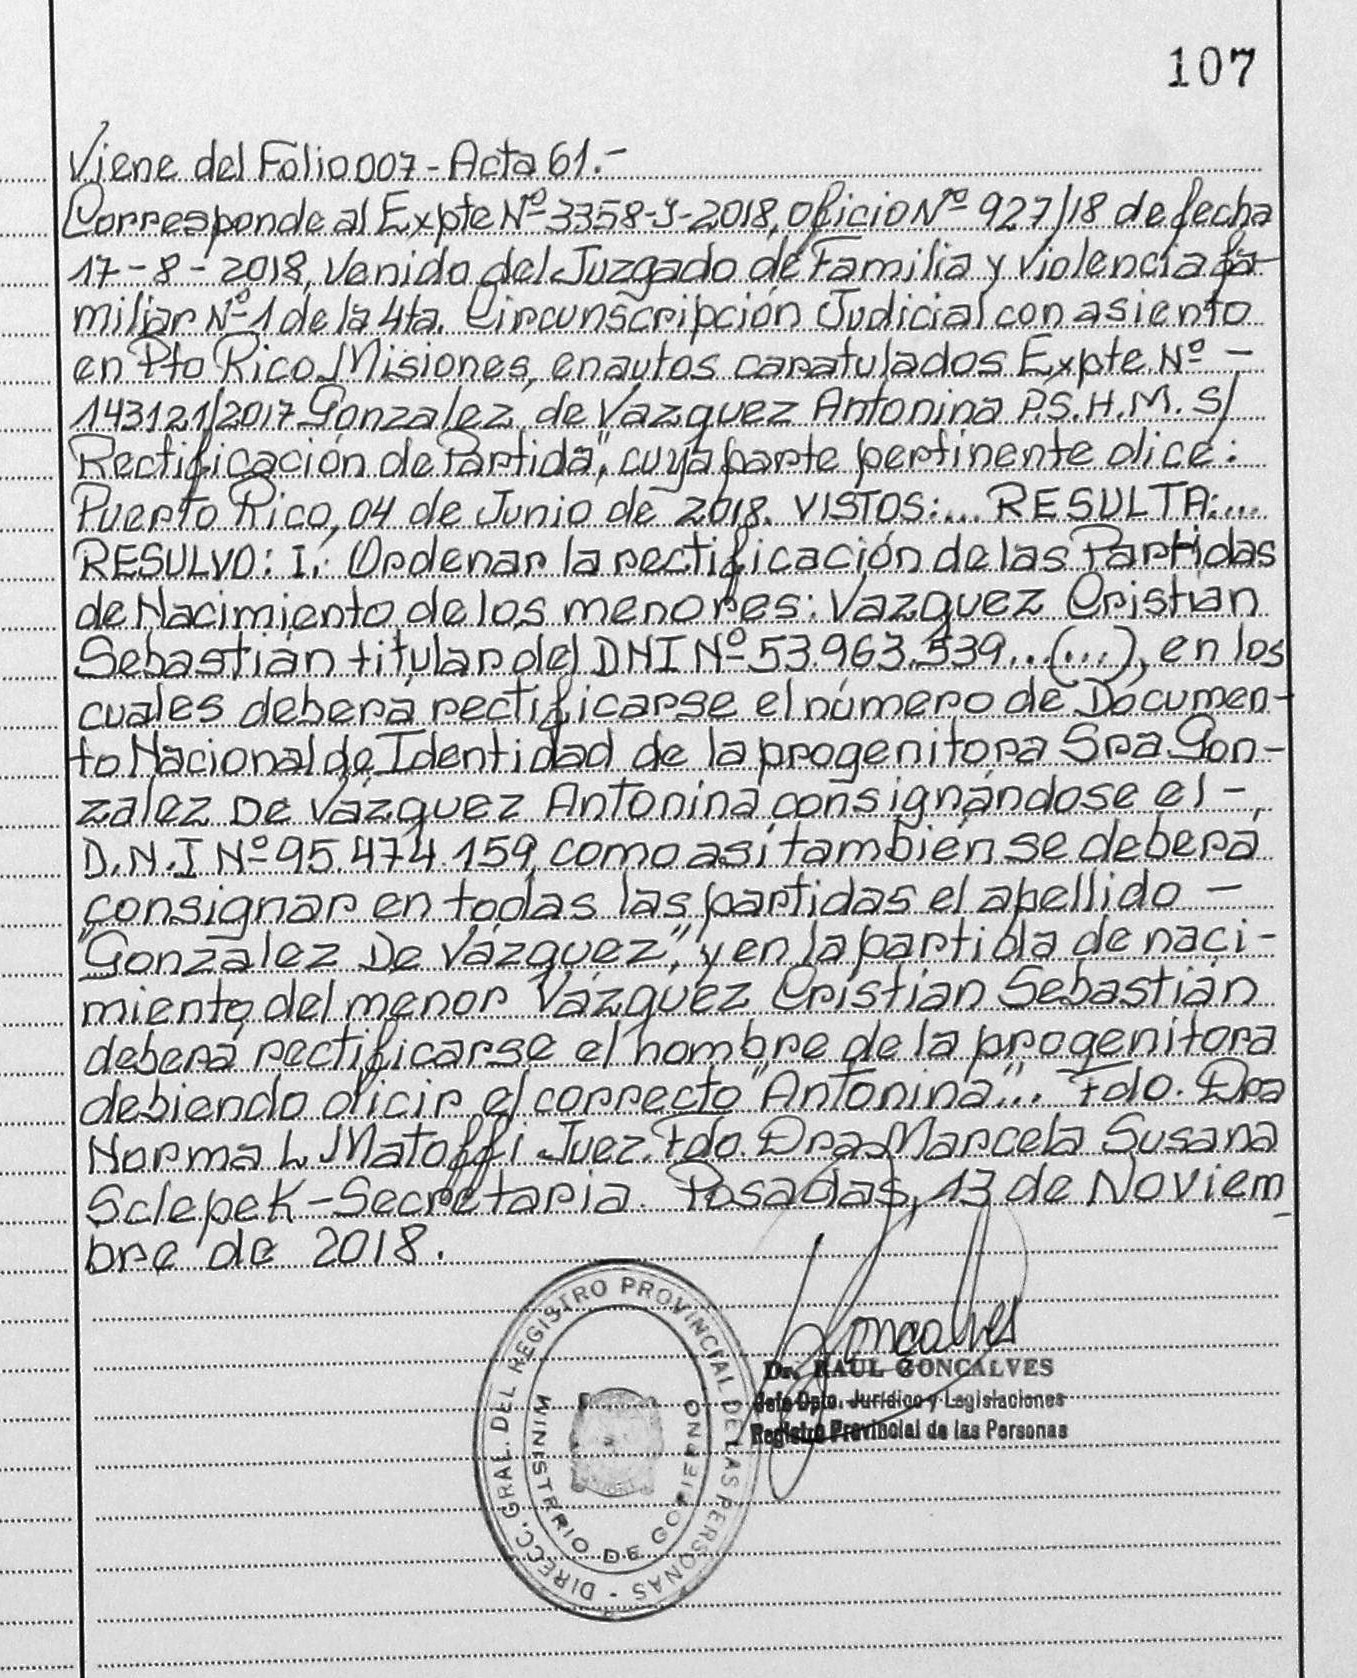 107
Viene del Folio 007 - Acta 61.-
Corresponde al Expte Nº 3358-J-2018, oficio Nº 927/18 de fecha
17-8-2018, venido del Juzgado de Familia y violencia fa-
miliar Nº 1 de la 4ta. Circunscripción Judicial con asiento
en Pto Rico Misiones, en autos caratulados Expte Nº -
143121/2017 González de Vázquez Antonina P.S.H.M. S/
Rectificación de Partida", cuya parte pertinente dice:
Puerto Rico, 04 de Junio de 2018. VISTOS:... RESULTA:...
RESULVO: I.- Ordenar la rectificación de las Partidas
de Nacimiento de los menores: Vazquez Cristian
Sebastián titular del DNI Nº 53.963.539...(...), en los
cuales deberá rectificarse el número de Documen-
to Nacional de Identidad de la progenitora Sra Gon-
zalez De Vázquez Antonina consignándose el -
D.N.I Nº 95.474.159, como así también se deberá
consignar en todas las partidas el apellido -
"González De Vázquez", y en la partida de naci-
miento del menor Vázquez Cristian Sebastián
deberá rectificarse el nombre de la progenitora
debiendo dicir el correcto "Antonina"... Fdo. Dra
Norma L Matoffi Juez. Fdo. Dra Marcela Susana
Sclepek - Secretaria. Posadas, 13 de Noviem
bre de 2018.
Gonçalves
Dr. RAUL GONCALVES
Jefe Dpto. Jurídico y Legislaciones
Registro Provincial de las Personas
DIRECC. GRAL. DEL REGISTRO PROVINCIAL DE LAS PERSONAS -
MINISTERIO DE GOBIERNO